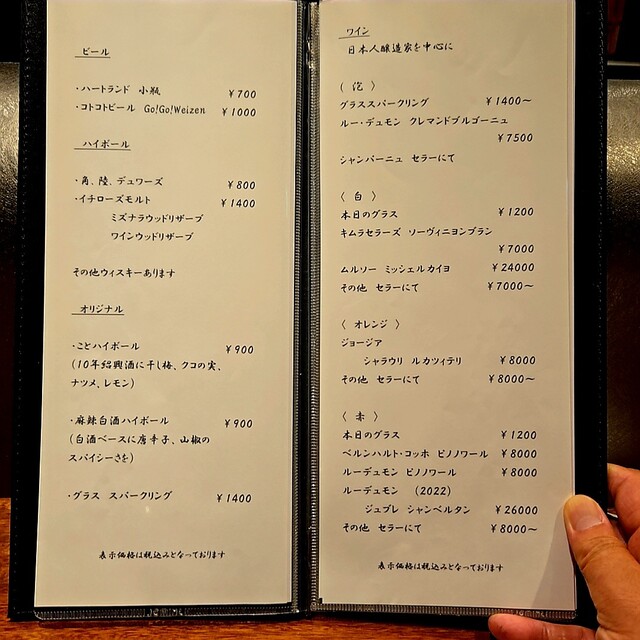 ビール
・ハートランド 小瓶 ¥700
・コトコトビール Go!Go!Weizen ¥1000
ハイボール
・角、陸、デュワーズ ¥800
・イチローズモルト ¥1400
ミズナラウッドリザーブ
ワインウッドリザーブ
その他ウィスキーあります
オリジナル
・ことハイボール ¥900
(10年紹興酒に干し梅、クコの実、
ナツメ、レモン)
・麻辣白酒ハイボール ¥900
(白酒ベースに唐辛子、山椒の
スパイシーさを)
・グラス スパークリング ¥1400
表示価格は税込みとなっております
ワイン
日本人醸造家を中心に
〈 泡 〉
グラススパークリング ¥1400～
ルー・デュモン クレマンドブルゴーニュ
¥7500
シャンパーニュ セラーにて
〈 白 〉
本日のグラス ¥1200
キムラセラーズ ソーヴィニヨンブラン
¥7000
ムルソー ミッシェルカイヨ ¥24000
その他 セラーにて ¥7000～
〈 オレンジ 〉
ジョージア
シャラウリ ルカツィテリ ¥8000
その他 セラーにて ¥8000～
〈 赤 〉
本日のグラス ¥1200
ベルンハルト・コッホ ピノノワール ¥8000
ルーデュモン ピノノワール ¥8000
ルーデュモン (2022)
ジュブレ シャンベルタン ¥26000
その他 セラーにて ¥8000～
表示価格は税込みとなっております